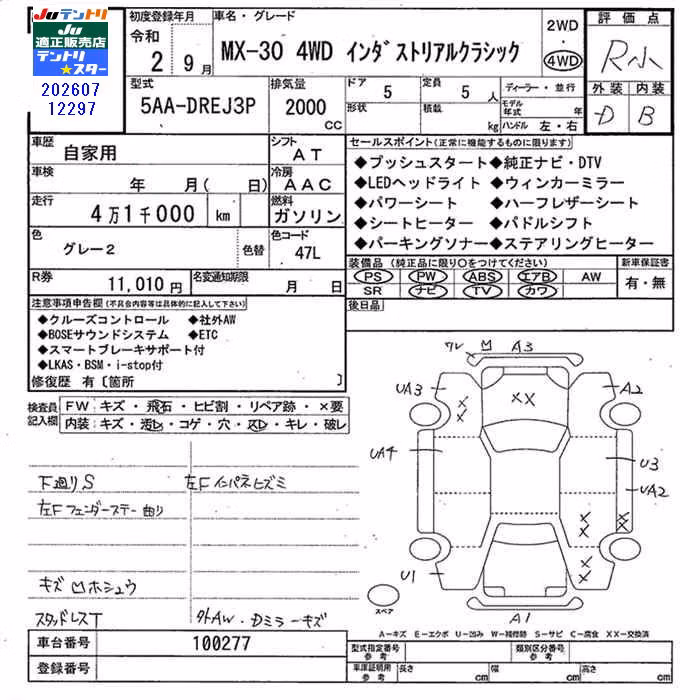 Juテントリ
Ju
適正販売店
テントリ
★スター
202607
12297
初度登録年月
令和
2 9月
車名・グレード
MX-30 4WD インダストリアルクラシック
2WD
・
4WD
評価点
R小
外装 内装
D B
型式
5AA-DREJ3P
排気量
2000
CC
ドア
5
形状
定員
5 人
積載
kg
ディーラー・並行
モデル年式 年
ハンドル 左・右
車歴
自家用
シフト
AT
車検
年 月( 日)
冷房
AAC
走行
4万1千000 km
燃料
ガソリン
色
グレー2
色替
色コード
47L
R券
11,010円
名変通知期限
月 日
セールスポイント(正常に機能するものに限ります)
◆プッシュスタート◆純正ナビ・DTV
◆LEDヘッドライト ◆ウィンカーミラー
◆パワーシート ◆ハーフレザーシート
◆シートヒーター ◆パドルシフト
◆パーキングソナー◆ステアリングヒーター
装備品(純正品に限り○をつけてください)
PS PW ABS エアB AW
SR ナビ TV カワ
新車保証書
有・無
後日品
注意事項申告欄(不具合内容等は具体的に記入して下さい)
◆クルーズコントロール ◆社外AW
◆BOSEサウンドシステム ◆ETC
◆スマートブレーキサポート付
◆LKAS・BSM・i-stop付
修復歴 有〔箇所 〕
検査員記入欄
FW:キズ・飛石・ヒビ割・リペア跡・×要
内装:キズ・汚レ・コゲ・穴・スレ・キレ・破レ
下廻りS 左Fインパネヒズミ
左Fフェンダーステー曲り
キズMホシュウ
スタッドレスT 外AW・Dミラーキズ
ワレ M A3
UA3
XX
X
X
A2
UA4
U3
UA2
X
X
X
X
X
X
U1
A1
スペア
A-キズ E-エクボ U-凹み W-補修跡 S-サビ C-腐食 XX-交換済
車台番号
100277
登録番号
型式指定番号
参考
類別区分番号
参考
車庫証明用
参考
長さ cm 幅 cm 高さ cm